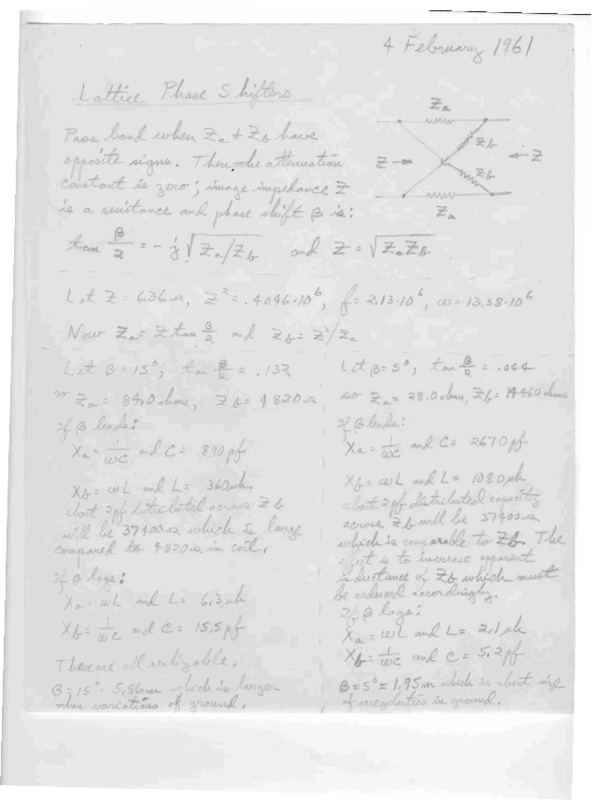 4 February 1961
Lattice Phase Shifters
Pass band when Za & Zb have
opposite signs. Then the attenuation
constant is zero; image impedance Z
is a resistance and phase shift β is:
Za
Zb
Z → ← Z
Zb
Za
tan β/2 = -j √Za/Zb and Z = √ZaZb
Let Z = 636 Ω, Z² = .4046·10⁶, f = 2.13·10⁶, ω = 13.38·10⁶
Now Za = Z tan β/2 and Zb = Z²/Za
Let β = 15°, tan β/2 = .132
so Za = 84.0 ohms, Zb = 4820 Ω
If β leads:
Xa = 1/ωC and C = 890 pf
Xb = ωL and L = 360 μh.
about 2 pf distributed across Zb
will be 37400 Ω which is large
compared to 4820 Ω in coil.
If β lags:
Xa = ωL and L = 6.3 μh
Xb = 1/ωC and C = 15.5 pf
These are all realizable.
β = 15° = 5.86 m which is larger
than variations of ground.
Let β = 5°, tan β/2 = .044
so Za = 28.0 ohms, Zb = 14460 ohms
If β leads:
Xa = 1/ωC and C = 2670 pf
Xb = ωL and L = 1080 μh
about 2 pf distributed capacity
across Zb will be 37400 Ω
which is comparable to Zb. The
effect is to increase apparent
inductance of Zb which must
be reduced accordingly.
If β lags:
Xa = ωL and L = 2.1 μh
Xb = 1/ωC and C = 5.2 pf
β = 5° = 1.95 m which is about size
of irregularities in ground.